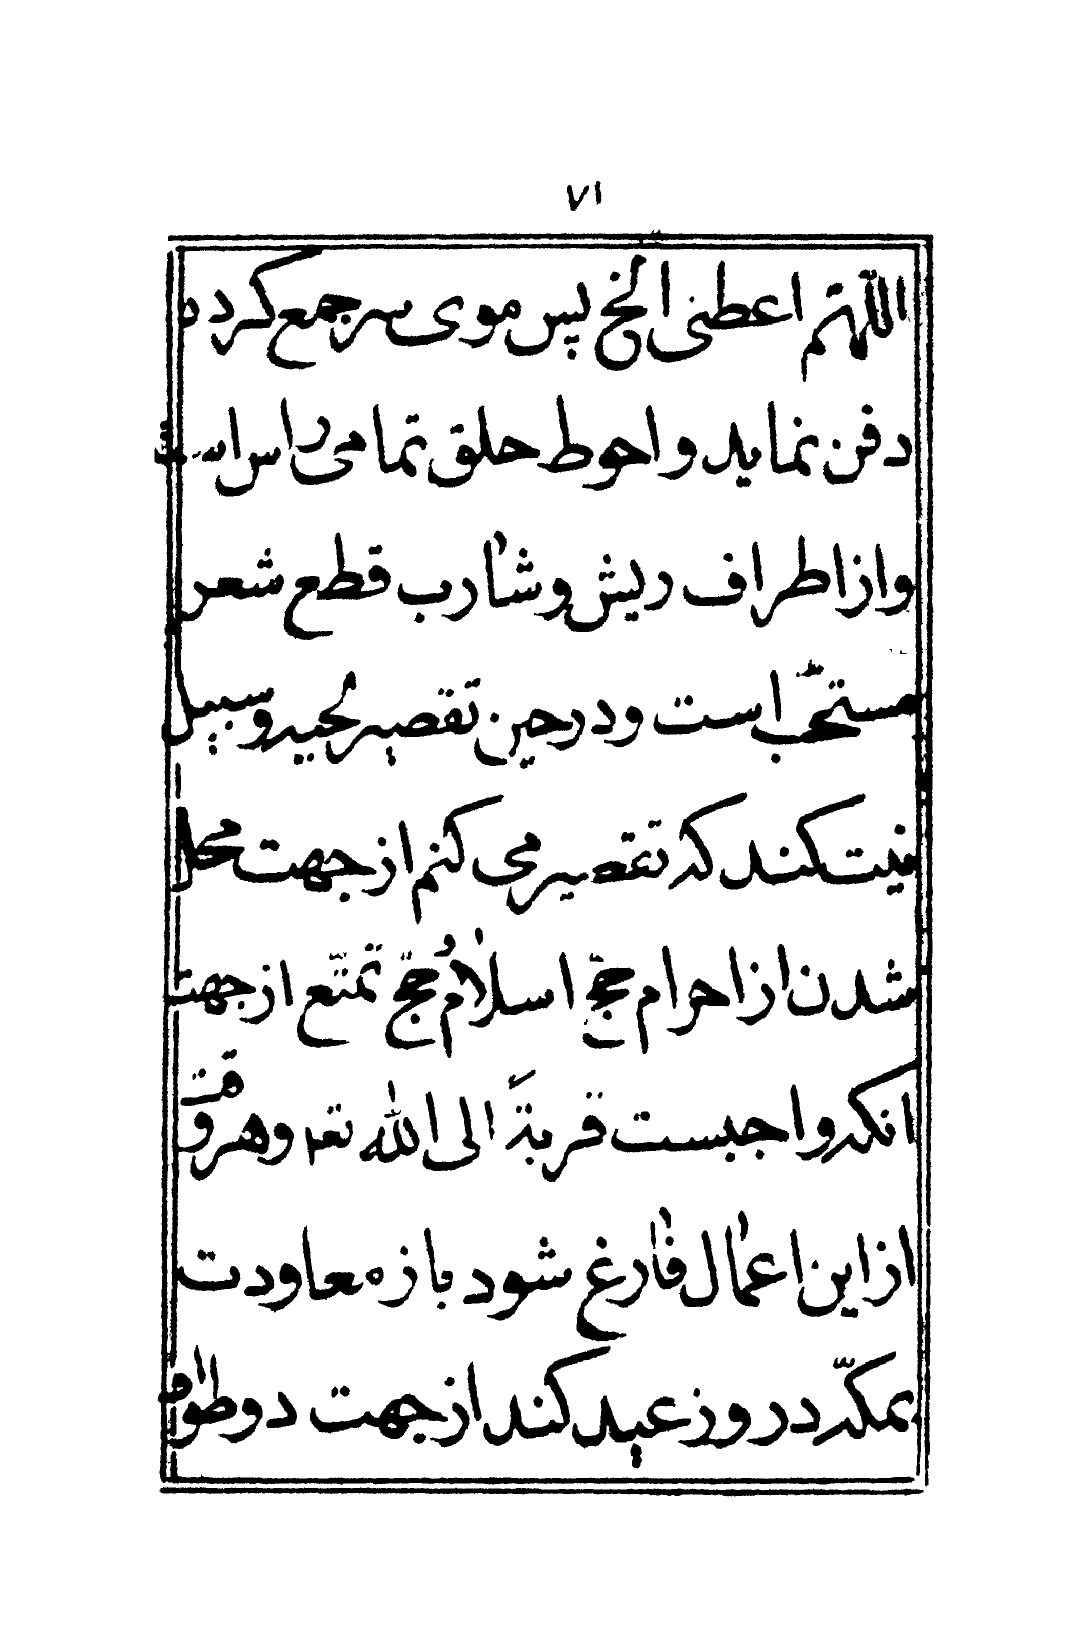 ٧١
اللّهمّ اعطنی الخ پس موی سر جمع کرده
دفن نماید و احوط حلق تمامی راس است
و از اطراف ریش و شارب قطع شعر
مستحّب است و در حین تقصیر لحیه و سبیل
نیت کند که تقصیر می کنم از جهت محل
شدن از احرام حجّ اسلام حجّ تمتّع از جهت
انکه واجبست قربةً الی الله تعم و هر وقت
از این اعمال فارغ شود بازه معاودت
بمکّه در روز عید کند از جهت دو طواف